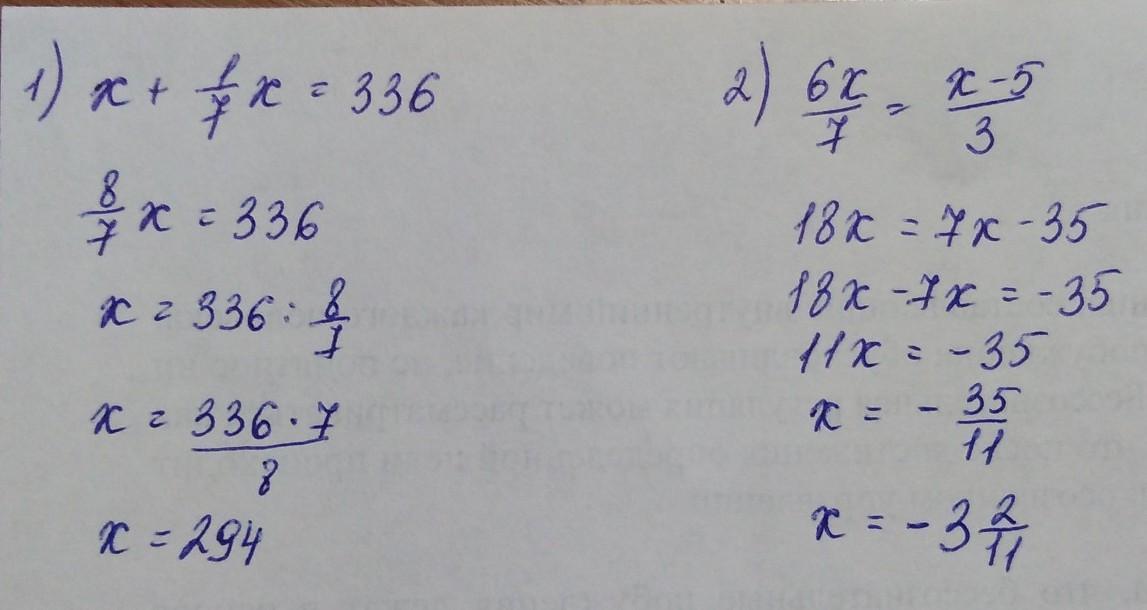 1) x + 1/7 x = 336
8/7 x = 336
x = 336 : 8/7
x = 336 · 7 / 8
x = 294
2) 6x/7 = x-5/3
18x = 7x - 35
18x - 7x = -35
11x = -35
x = - 35/11
x = -3 2/11